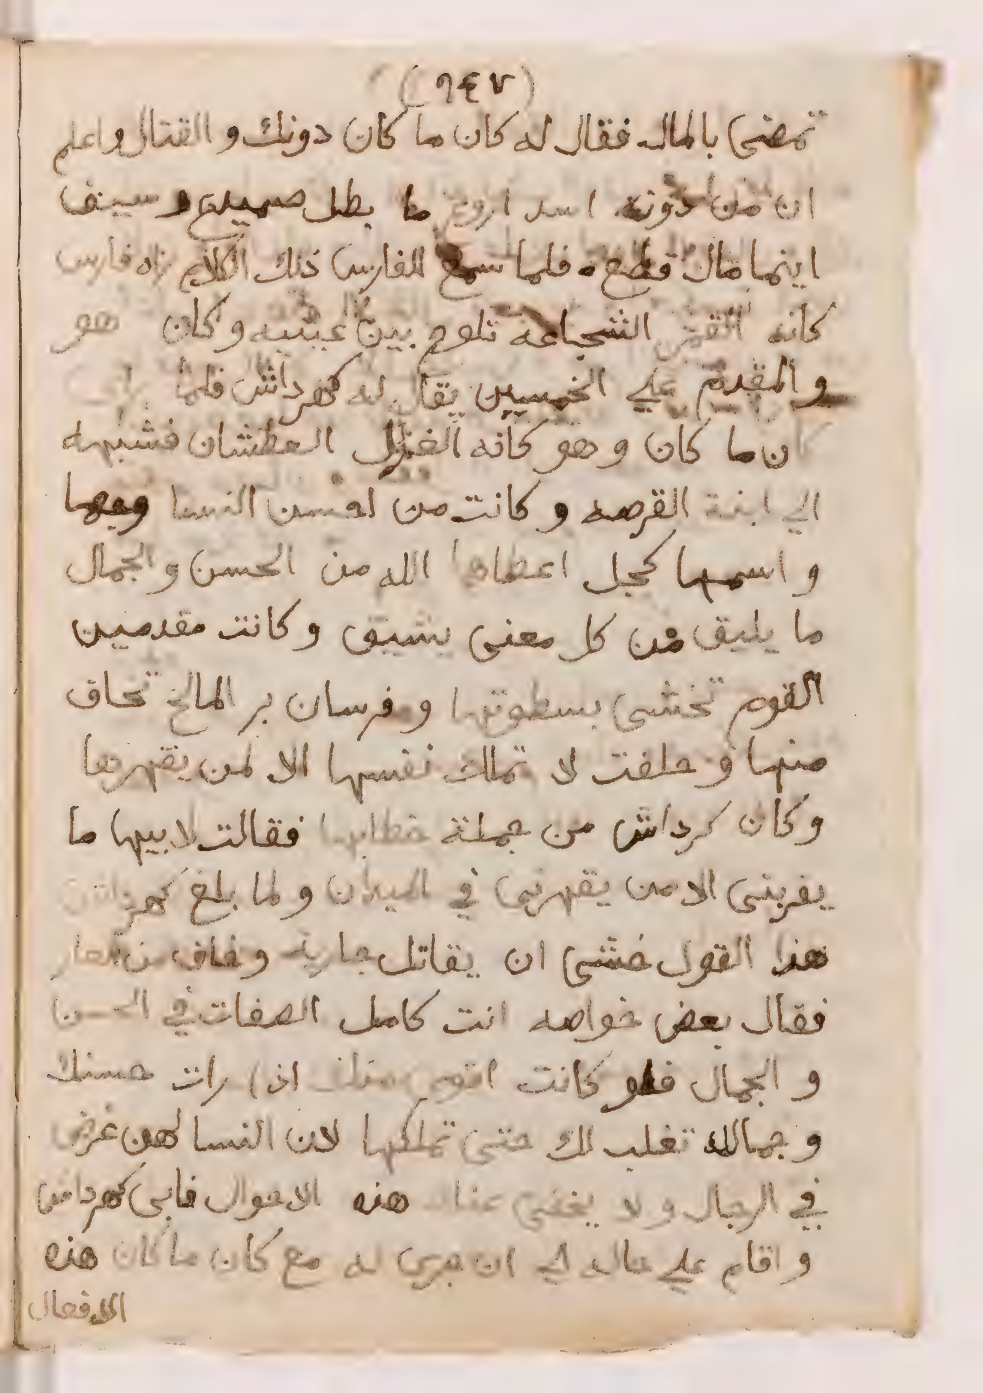 (٦٤٧)
تمضى بالمال فقال له كان ما كان دونك و القتال واعلم
ان من دونه اسد اروع ما بطل صميدع و سيف
اينما مال قطع فلما سمع الفارس ذلك الكلام راه فارس
كانه القمر الشجاعه تلوح بين عينيه و كان هو
و المقدم علي الخمسين يقال له كهرداش فلما راى
كان ما كان و هو كانه الغزال العطشان فشبهه
الي ابنة القرصه و كانت من احسن النسا وجها
و اسمها كحجل اعطاها الله من الحسن و الجمال
ما يليق من كل معنى يشيق و كانت مقدمين
القوم تخشى بسطوتها و فرسان بر المالح تخاف
منها و حلفت لا تملك نفسها الا لمن يقهرها
و كان كرداش من جملة خطابها فقالت لابيها ما
يقربنى الا من يقهرنى في الميدان و لما بلغ كهرداش
هذا القول خشى ان يقاتل جاريه و خاف من العار
فقال بعض خواصه انت كامل الصفات في الحسن
و الجمال فلو كانت اقوم منك اذا رات حسنك
و جمالك تغلب لك حتى تملكها لان النسا لهن غرض
في الرجال و لا يخفى عنك هذه الاحوال فابى كهرداش
و اقام علي حاله الي ان جرى له مع كان ما كان هذه
الافعال